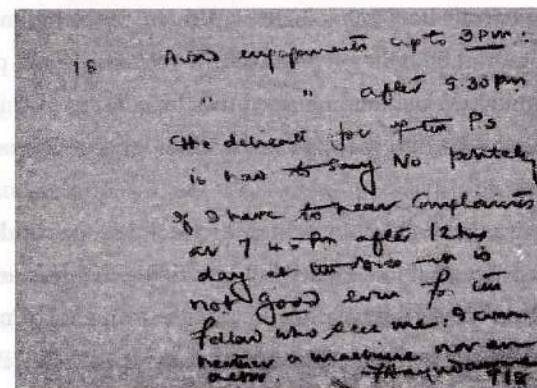 18 Avoid engagements upto 3 pm:
" " after 5.30 pm
The delicate job of the P.S
is how to say No politely
If I have to hear Complaints
at 7 45 Pm after 12 hrs
day at the office it is
not good even for the
fellow who sees me: I am
neither a machine nor an
actor. 7/8